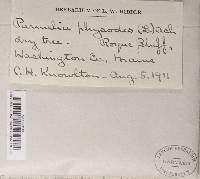 HERBARIUM OF L. W. RIDDLE
Parmelia physodes (L.) Ach
dry tree. Roque Bluff,
Washington Co., Maine
C. H. Knowlton. Aug. 5, 1911